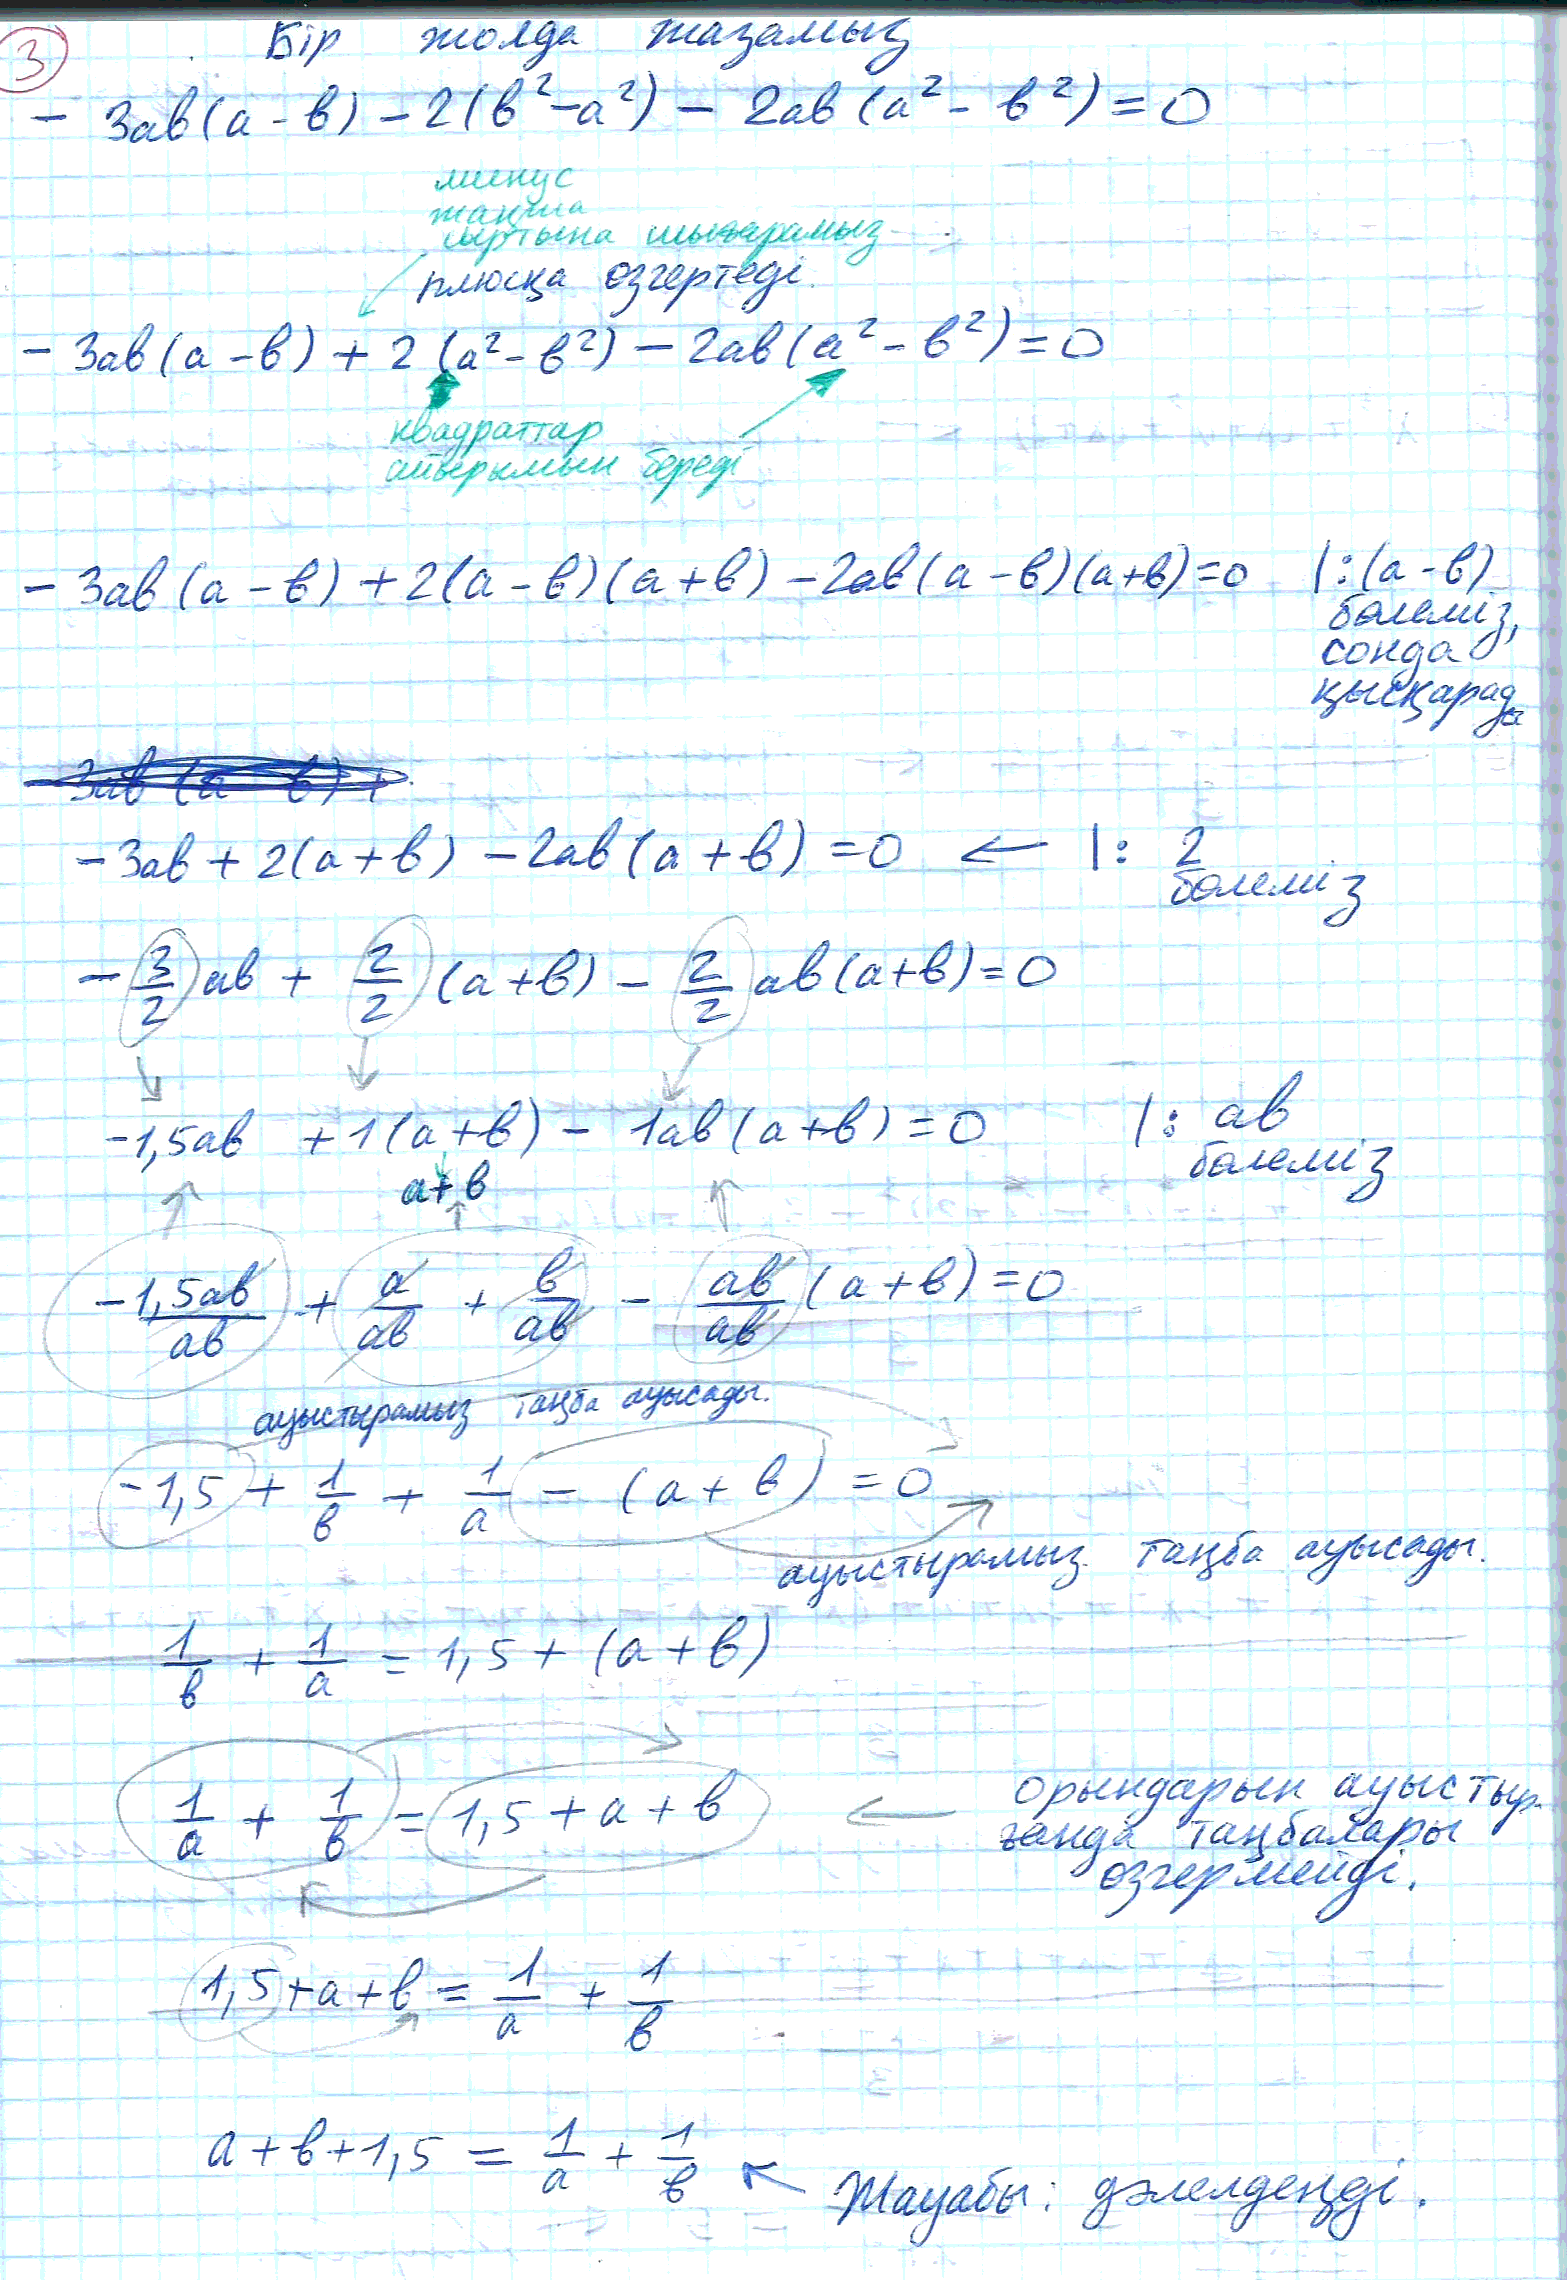 3
Бір жолда жазамыз
- 3ab(a - b) - 2(b² - a²) - 2ab(a² - b²) = 0
минус
жақша
сыртына шығарамыз
плюсқа өзгертеді.
- 3ab(a - b) + 2(a² - b²) - 2ab(a² - b²) = 0
квадраттар
айырымын береді
- 3ab(a - b) + 2(a - b)(a + b) - 2ab(a - b)(a + b) = 0 |:(a - b)
бөлеміз,
сонда
қысқарады
- 3ab + 2(a + b) - 2ab(a + b) = 0 ← |: 2
бөлеміз
- 3/2 ab + 2/2 (a + b) - 2/2 ab(a + b) = 0
-1,5ab + 1(a + b) - 1ab(a + b) = 0 |: ab
бөлеміз
a + b
-1,5ab/ab + a/ab + b/ab - ab/ab (a + b) = 0
ауыстырамыз таңба ауысады.
-1,5 + 1/b + 1/a - (a + b) = 0
ауыстырамыз таңба ауысады.
1/b + 1/a = 1,5 + (a + b)
1/a + 1/b = 1,5 + a + b ← орындарын ауыстыр-
ғанда таңбалары
өзгермейді.
1,5 + a + b = 1/a + 1/b
a + b + 1,5 = 1/a + 1/b
Жауабы: дәлелденді.